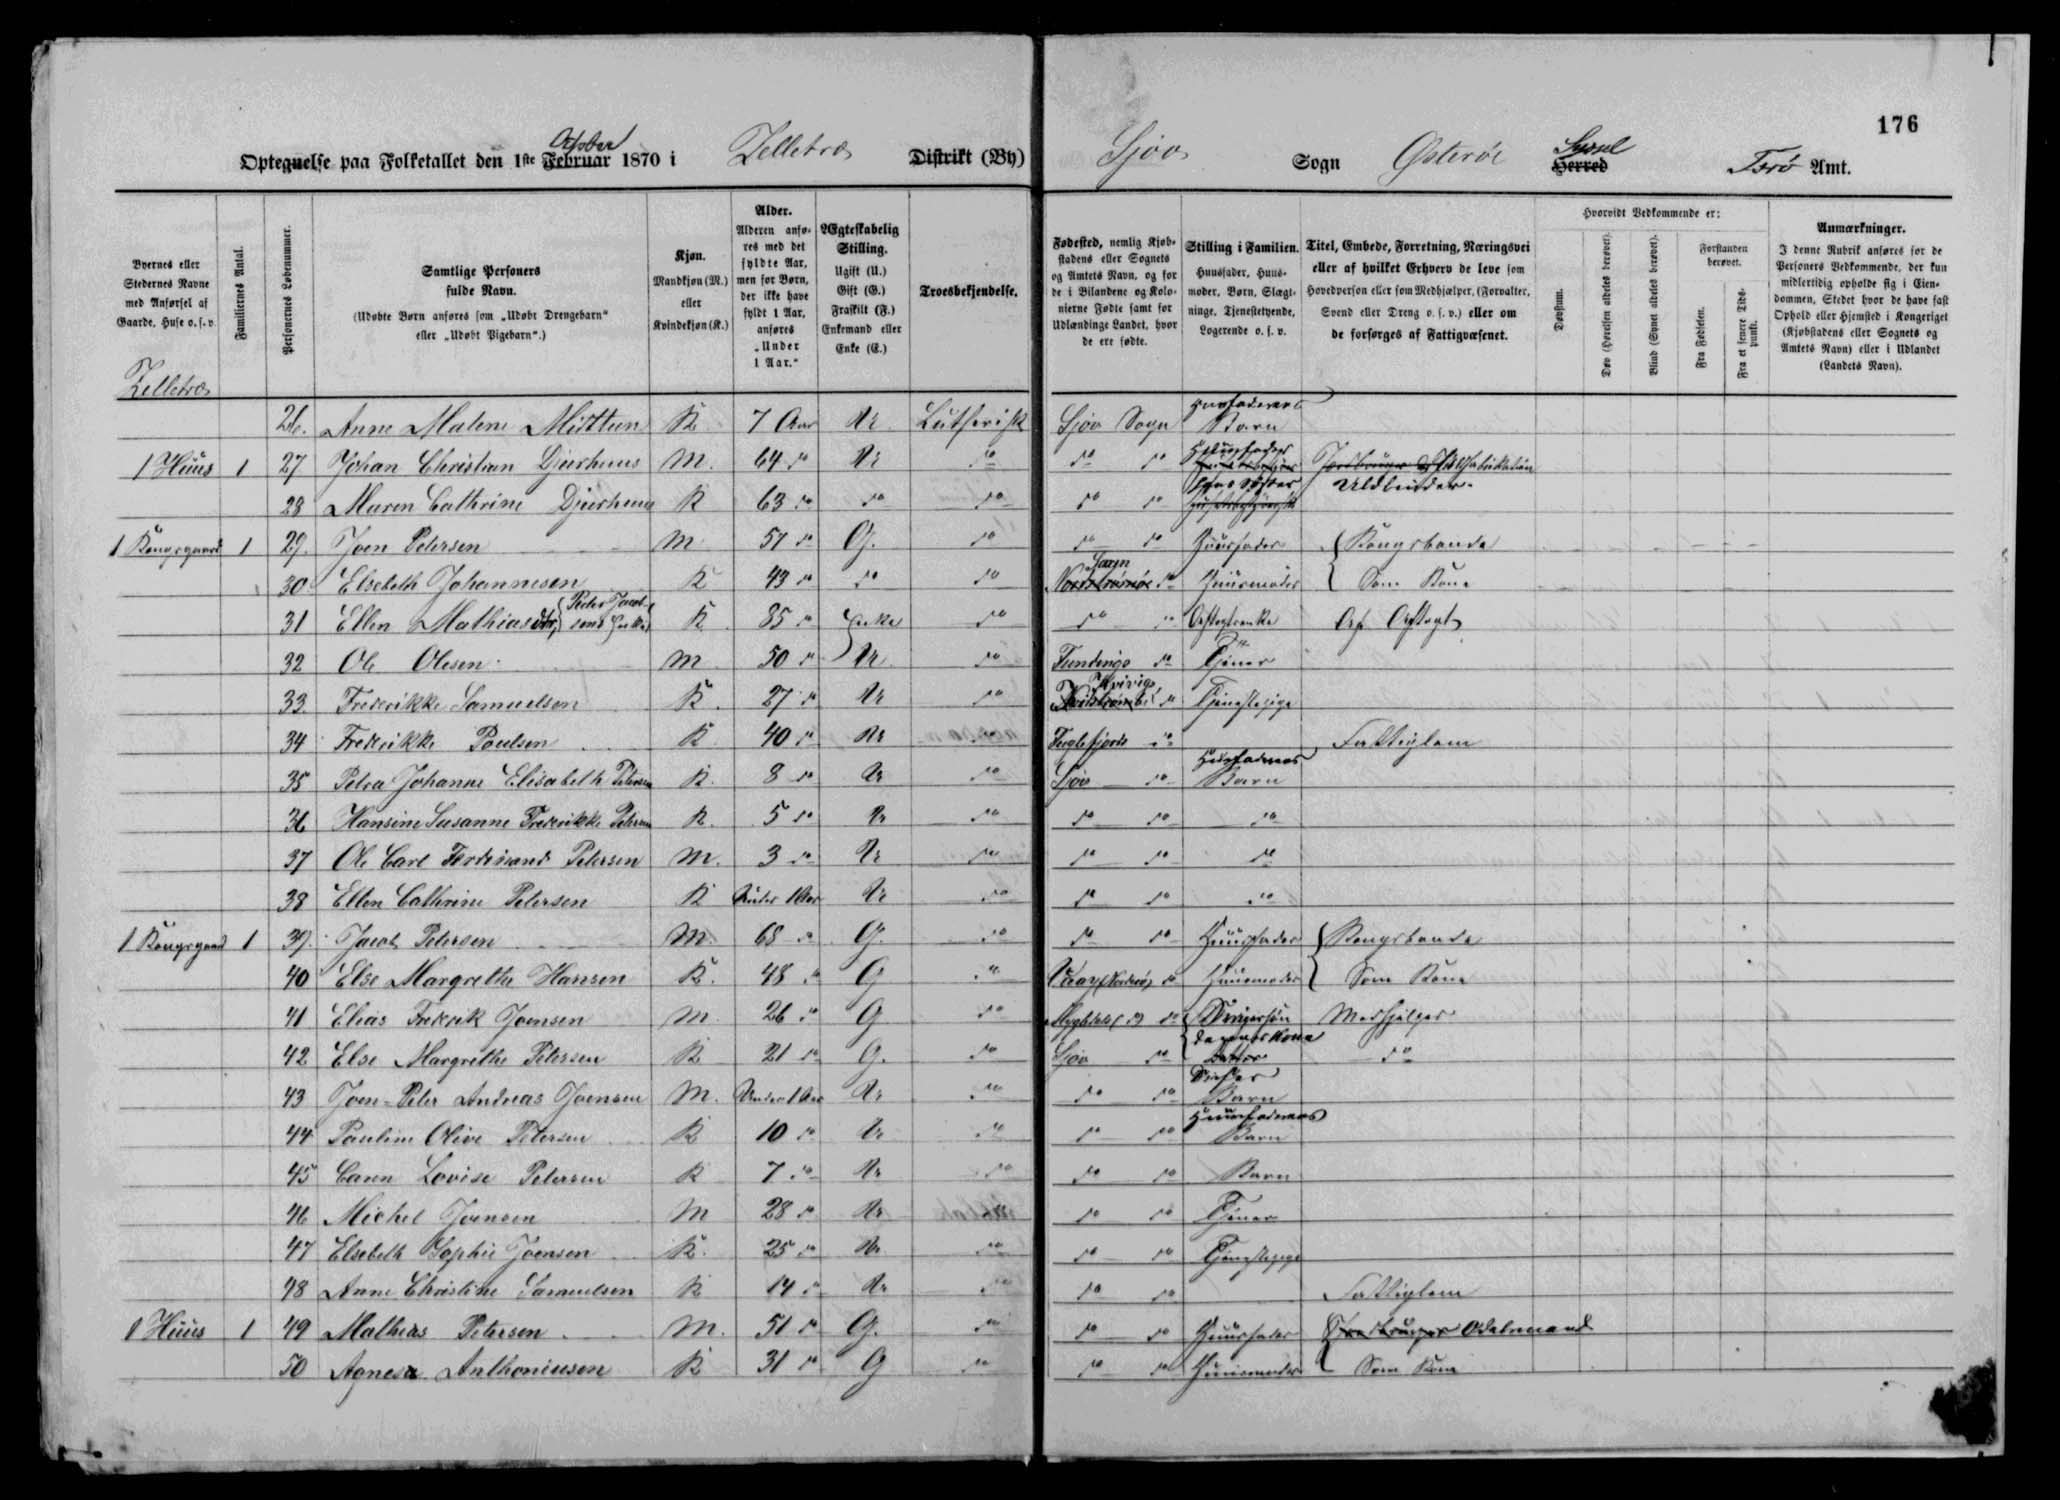 176
October
Optegnelse paa Folketallet den 1ste Februar 1870 i Zelletræ Distrikt (By) Sjov Sogn Østerøe Syssel Herred Færø Amt.
Byernes eller Stedernes Navne med Anførsel af Gaarde, Huse o. s. v.
Familiernes Antal.
Personernes Løbenummer.
Samtlige Personers fulde Navn.
(Udøbte Børn anføres som „Udøbt Drengebarn" eller „Udøbt Pigebarn".)
Kjøn.
Mandkjøn (M.) eller Kvindekjøn (K.)
Alder.
Alderen anføres med det fyldte Aar, men for Børn, der ikke have fyldt 1 Aar, anføres „Under 1 Aar."
Ægteskabelig Stilling.
Ugift (U.) Gift (G.) Fraskilt (F.) Enkemand eller Enke (E.)
Troesbekjendelse.
Fødested, nemlig Kjøbstadens eller Sognets og Amtets Navn, og for de i Bilandene og Kolonierne Fødte samt for Udlændinge Landet, hvor de ere fødte.
Stilling i Familien.
Huusfader, Huusmoder, Børn, Slægtninge, Tjenestetyende, Logerende o. s. v.
Titel, Embede, Forretning, Næringsvei eller af hvilket Erhverv de leve som Hovedperson eller som Medhjælper, (Forvalter, Svend eller Dreng o. s. v.) eller om de forsørges af Fattigvæsenet.
Hvorvidt Vedkommende er:
Døvstum.
Døv (Hørelsen aldeles berøvet).
Blind (Synet aldeles berøvet).
Forstanden berøvet.
Fra Fødselen.
Fra et senere Tidspunkt.
Anmærkninger.
I denne Rubrik anføres for de Personers Vedkommende, der kun midlertidig opholde sig i Eiendommen, Stedet hvor de have fast Ophold eller Hjemsted i Kongeriget (Kjøbstadens eller Sognets og Amtets Navn) eller i Udlandet (Landets Navn).
Zelletræ
26. Anne Malene Mortten K 7 Aar Ur Luthersk Sjov Sogn Husfaderens Barn
1 Huus 1 27 Johan Christian Djurhuus M. 64 do Ur do do do Huusfader Uldbinder
28 Maren Cathrine Djurhuus K 63 do do do do do Hans Søster
1 Kongsgaard 1 29. Joen Petersen M. 57 do G. do do do Huusfader { Kongsbonde
30 Elsebeth Johannesen K 43 do do do Nordstrømøe do Huusmoder Som Kone
31 Ellen Mathiasdtr, { Peder Jacobsens Enke) K 85 do Enke do do do Aftegtsenke Af Aftegt
32 Ole Olesen M 50 do Ur do Fundings do Tjener
33. Frederikke Samuelsen K 27 do Ur do Kvivigs do Tjenestepige
34 Fredrikke Poulsen K 40 do Ur do Fuglefjords do Fattiglem
35 Petra Johanne Elisabeth Petersen K. 8 do Ur do Sjov do Husfaderens Barn
36 Hansine Susanne Frederikke Petersen K. 5 do Ur do do do do
37 Ole Carl Ferdinand Petersen M. 3 do Ur do do do do
38 Ellen Cathrine Petersen K Under 1 Aar Ur do do do do
1 Kongsgaard 1 39. Jacob Petersen M. 68 do G. do do do Huusfader { Kongsbonde
40 Else Margrethe Hansen K. 48 do G do do Huusmoder Som Kone
41 Elias Fredrik Joensen M. 26 do G do do Svigersøn Medhjelper
42 Else Margrethe Petersen K 21 do G. do Sjov do Datter do
43 Joen-Peter Andreas Joensen M. Under 1 Aar Ur do do do Barn
44 Pauline Olive Petersen K 10 do Ur do do do Huusfaderens Barn
45 Caren Lovise Petersen K 7 do Ur do do do Barn
46 Michel Joensen M 28 do Ur do do Tjener
47 Elsebeth Sophie Joensen K. 25 do Ur do do do Tjenestepige
48 Anne Christine Samuelsen K 14 do Ur do do do Fattiglem
1 Huus 1 49 Mathias Petersen M. 51 do G. do do do Huusfader { Odelsmand
50 Agnesa Anthoniusen K 31 do G do do do Huusmoder Som Kone